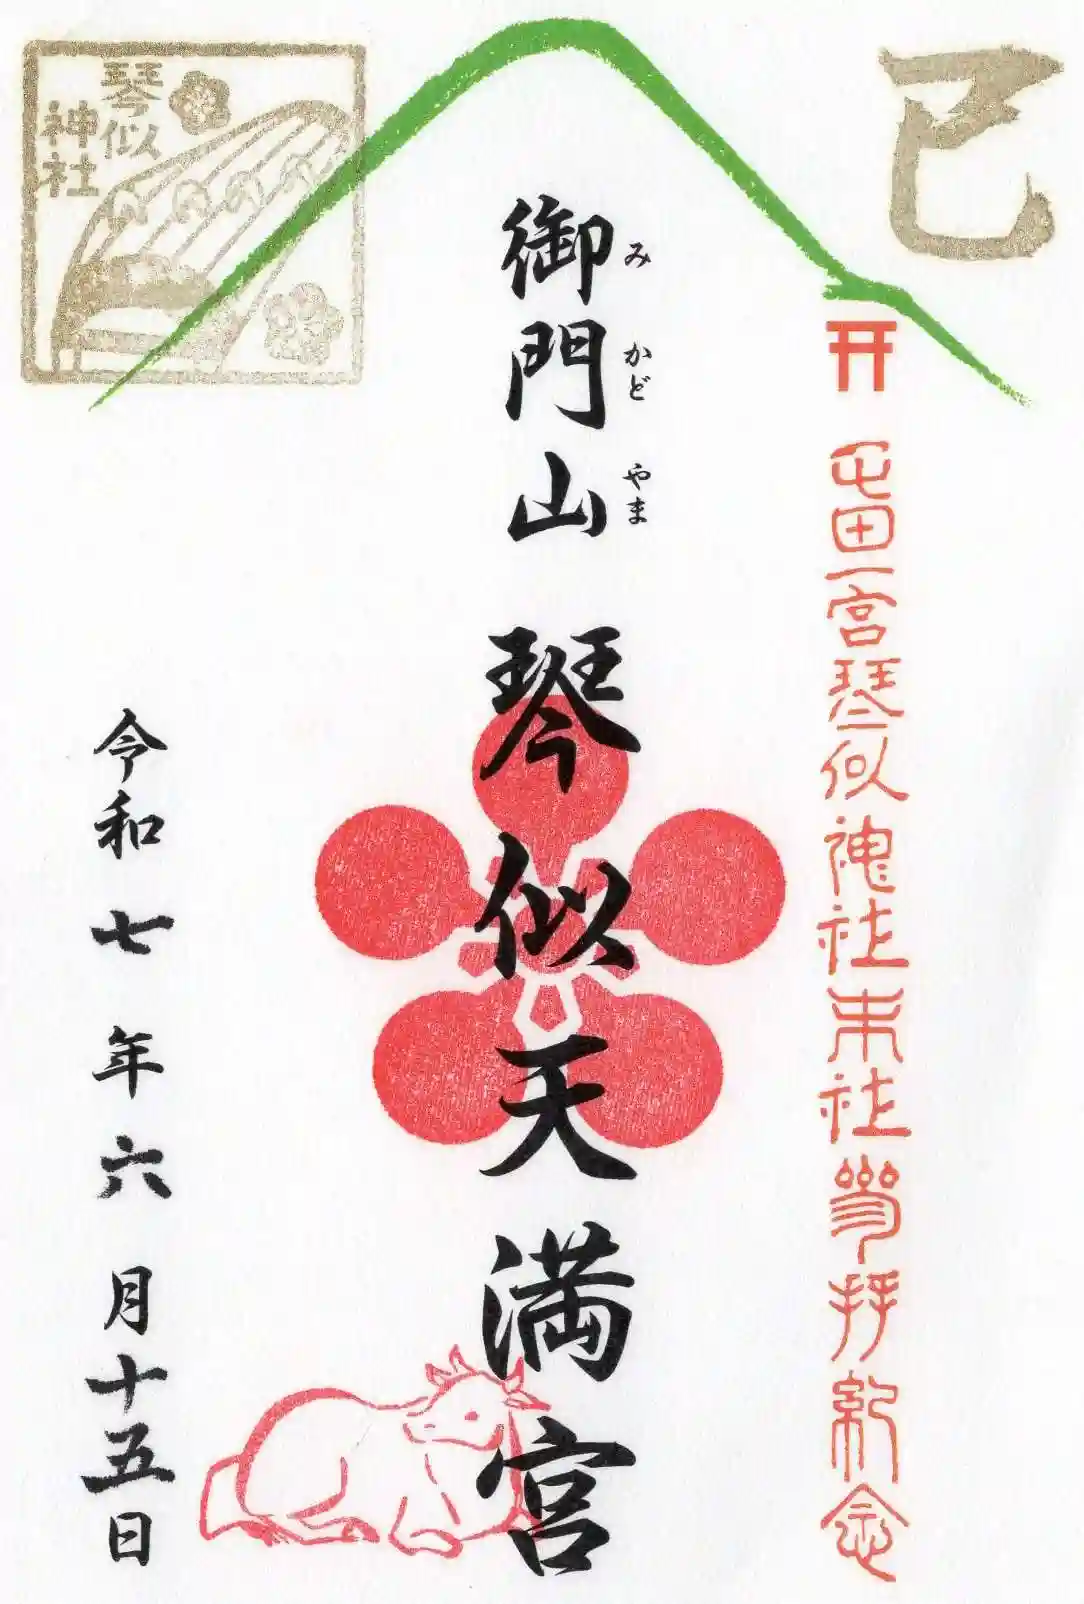 巳
屯田一宮琴似神社末社参拝紀念
御門山 琴似天満宮
み かど やま
琴似
神社
令和七年六月十五日